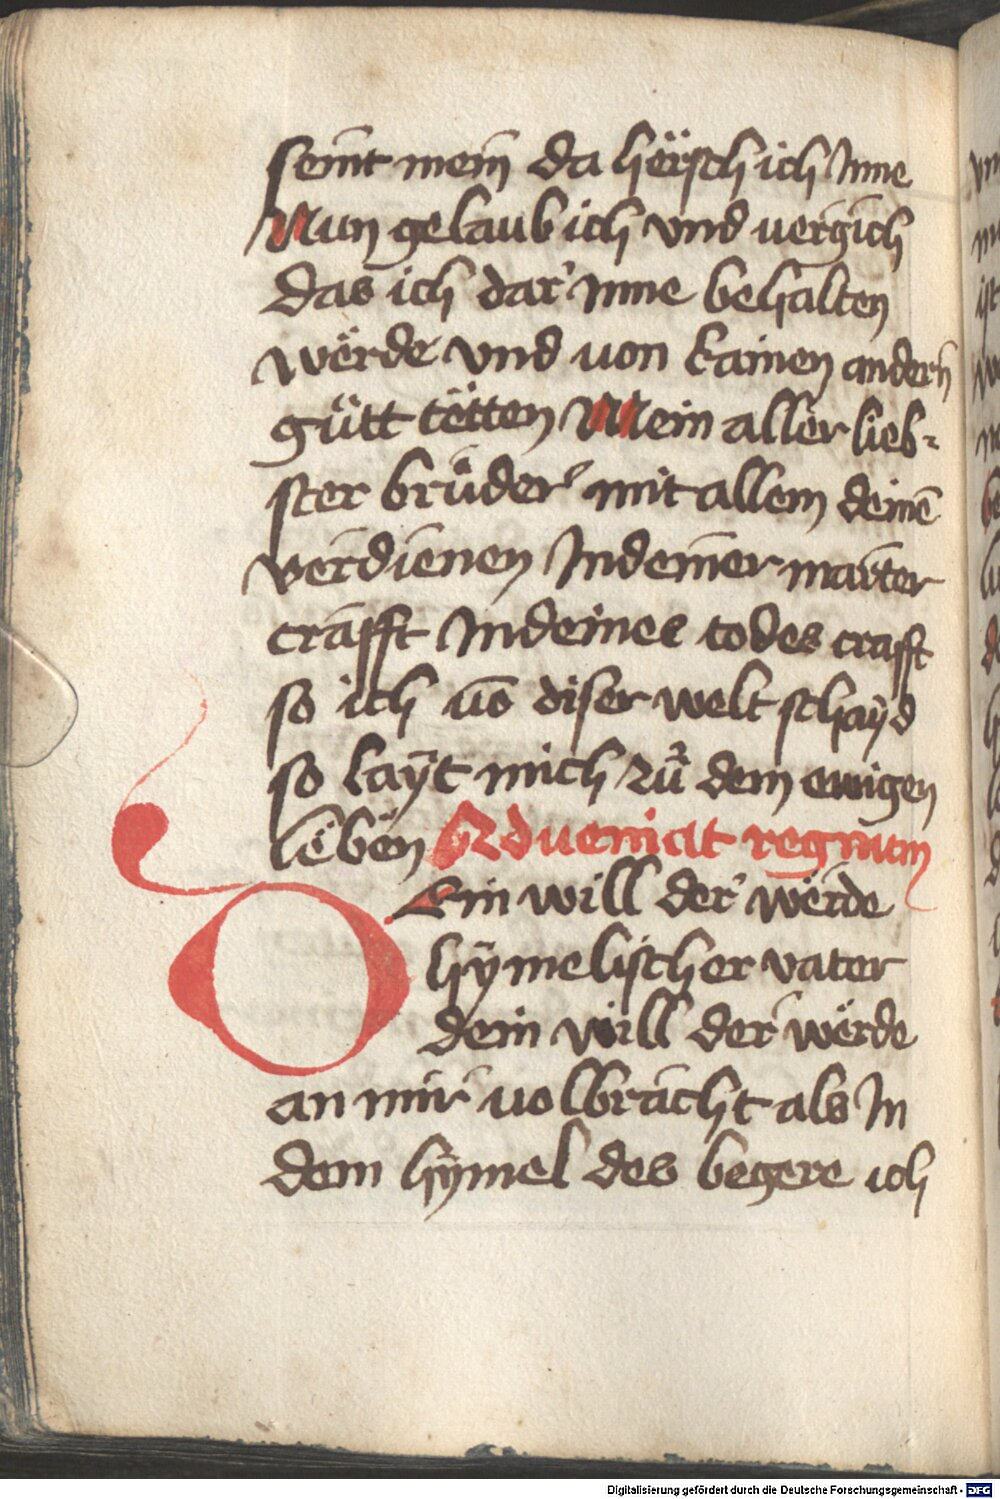 seint mein da hërsch ich Inne
Nun gelaub ich vnd uergich
das ich dar Inne behalten
wërde vnd uon kainen andern
gütt tëtten Mein aller lieb-
ster brůder mit allem deinē
verdienen In deiner marter
crafft In deines todes crafft
so ich us diser welt schayd
so layt mich zů dem ewigen
leben Adueniat regnum
Dein will der werde
hymelischer vater
dein will der wërde
an mir uolbracht als In
dem hymel des begere ich
Digitalisierung gefördert durch die Deutsche Forschungsgemeinschaft - DFG